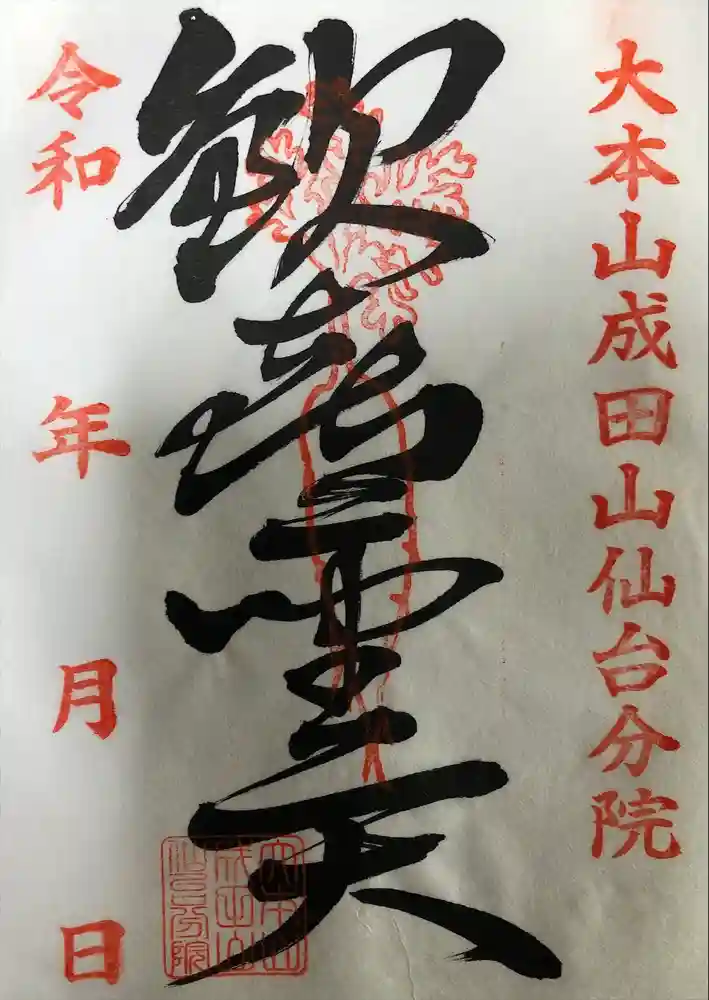 大本山成田山仙台分院
歓喜聖天
令和 年 月 日
大本山
成田山
仙台分院